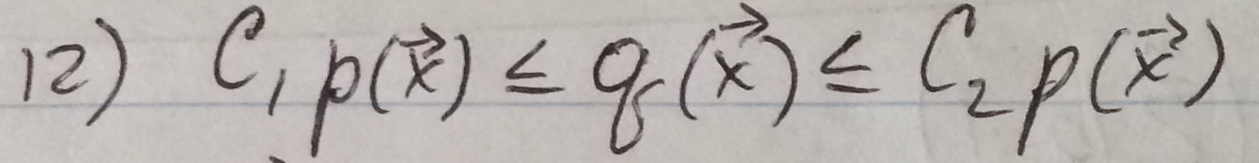 12) C₁p(x⃗) ≤ q(x⃗) ≤ C₂p(x⃗)